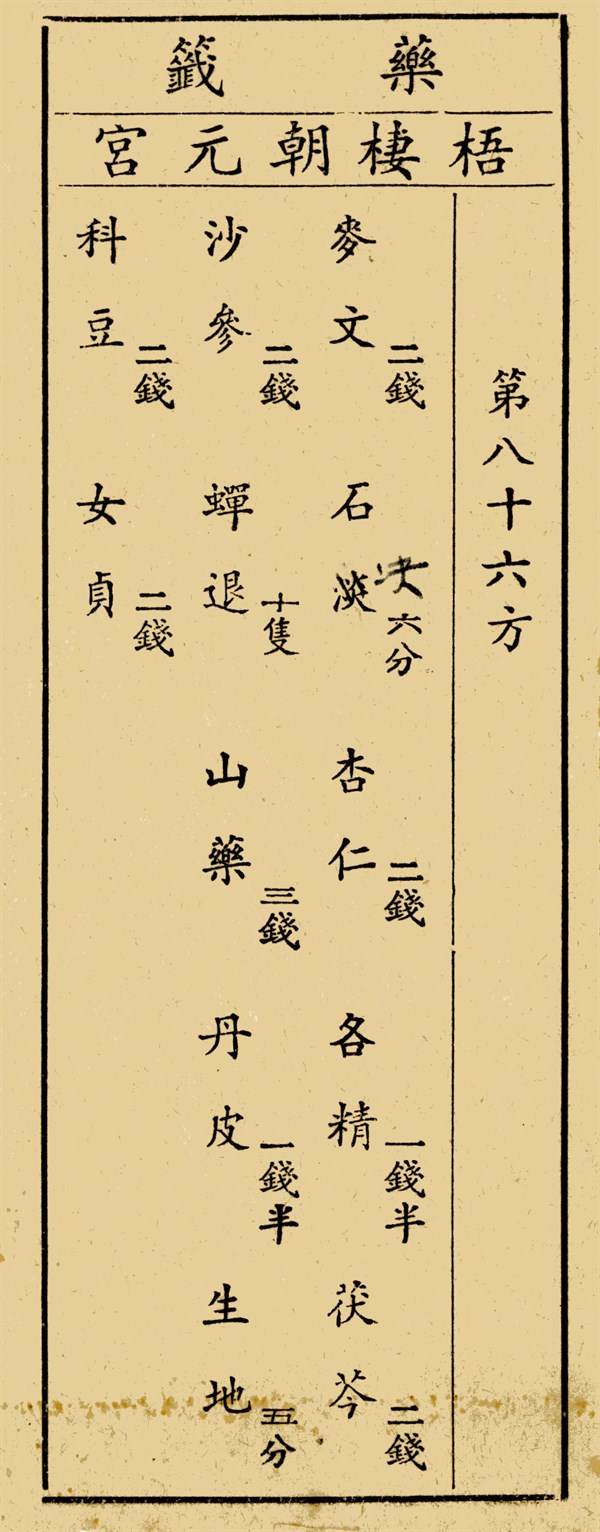 藥籤
梧棲朝元宮
第八十六方
麥文 二錢 石淡 六分 杏仁 二錢 各精 一錢半 茯芩 二錢
沙參 二錢 蟬退 十隻 山藥 三錢 丹皮 一錢半 生地 五分
科豆 二錢 女貞 二錢